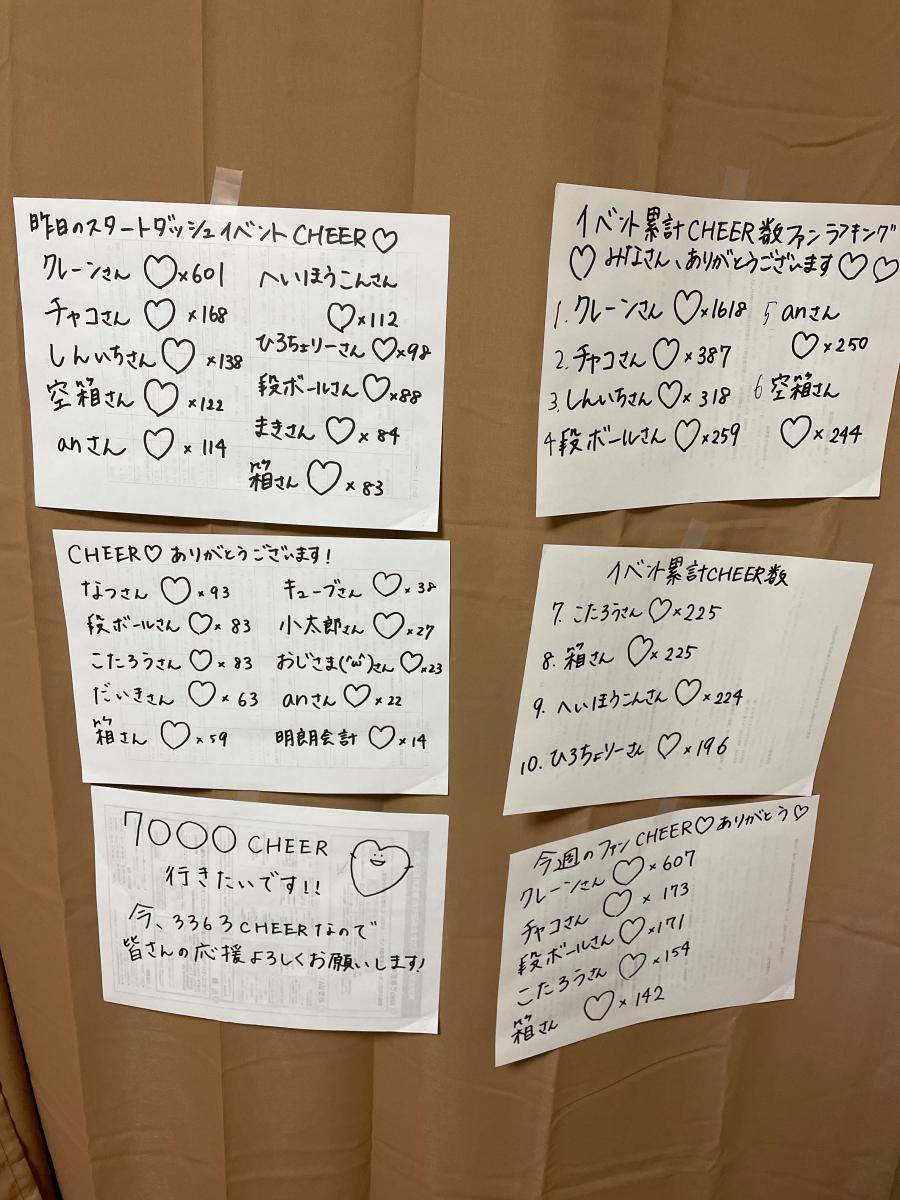 昨日のスタートダッシュイベントCHEER♡
クレーンさん ♡×601
チャコさん ♡×168
しんいちさん ♡×138
空箱さん ♡×122
anさん ♡×114
へいほうこんさん
♡×112
ひろちょりーさん ♡×98
段ボールさん ♡×88
まきさん ♡×84
箱さん ♡×83
CHEER♡ありがとうございます!
なつさん ♡×93
段ボールさん ♡×83
こたろうさん ♡×83
だいきさん ♡×63
箱さん ♡×59
キューブさん ♡×38
小太郎さん ♡×27
おじさま('ω')さん ♡×23
anさん ♡×22
明朗会計 ♡×14
7000 CHEER
行きたいです!!
今、3363CHEERなので
皆さんの応援よろしくお願いします!
イベント累計CHEER数ファンランキング
♡みなさん、ありがとうございます♡♡
1. クレーンさん ♡×1618
2. チャコさん ♡×387
3. しんいちさん ♡×318
4 段ボールさん ♡×259
5 anさん
♡×250
6 空箱さん
♡×244
イベント累計CHEER数
7. こたろうさん ♡×225
8. 箱さん ♡×225
9. へいほうこんさん ♡×224
10. ひろちょりーさん ♡×196
今週のファンCHEER♡ありがとう♡
クレーンさん ♡×607
チャコさん ♡×173
段ボールさん ♡×171
こたろうさん ♡×154
箱さん ♡×142